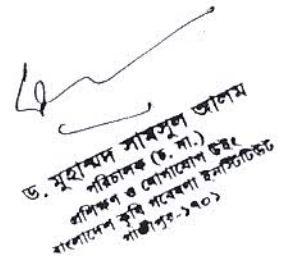 ড. মুহাম্মদ সামসুল আলম
পরিচালক (চ. দা.)
প্রশিক্ষণ ও যোগাযোগ উইং
বাংলাদেশ কৃষি গবেষণা ইনস্টিটিউট
গাজীপুর-১৭০১